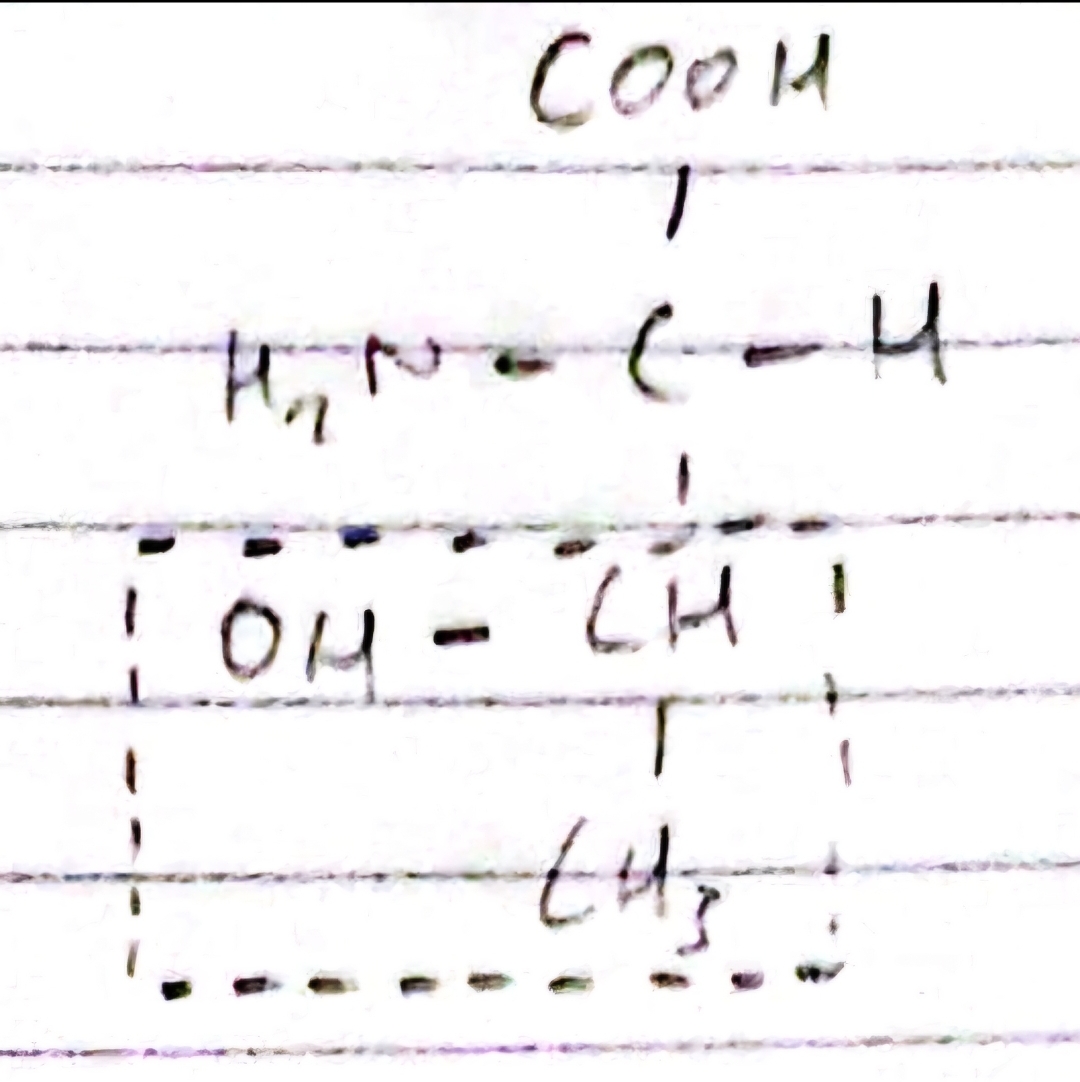 COOH
H2N - C - H
OH - CH
CH3